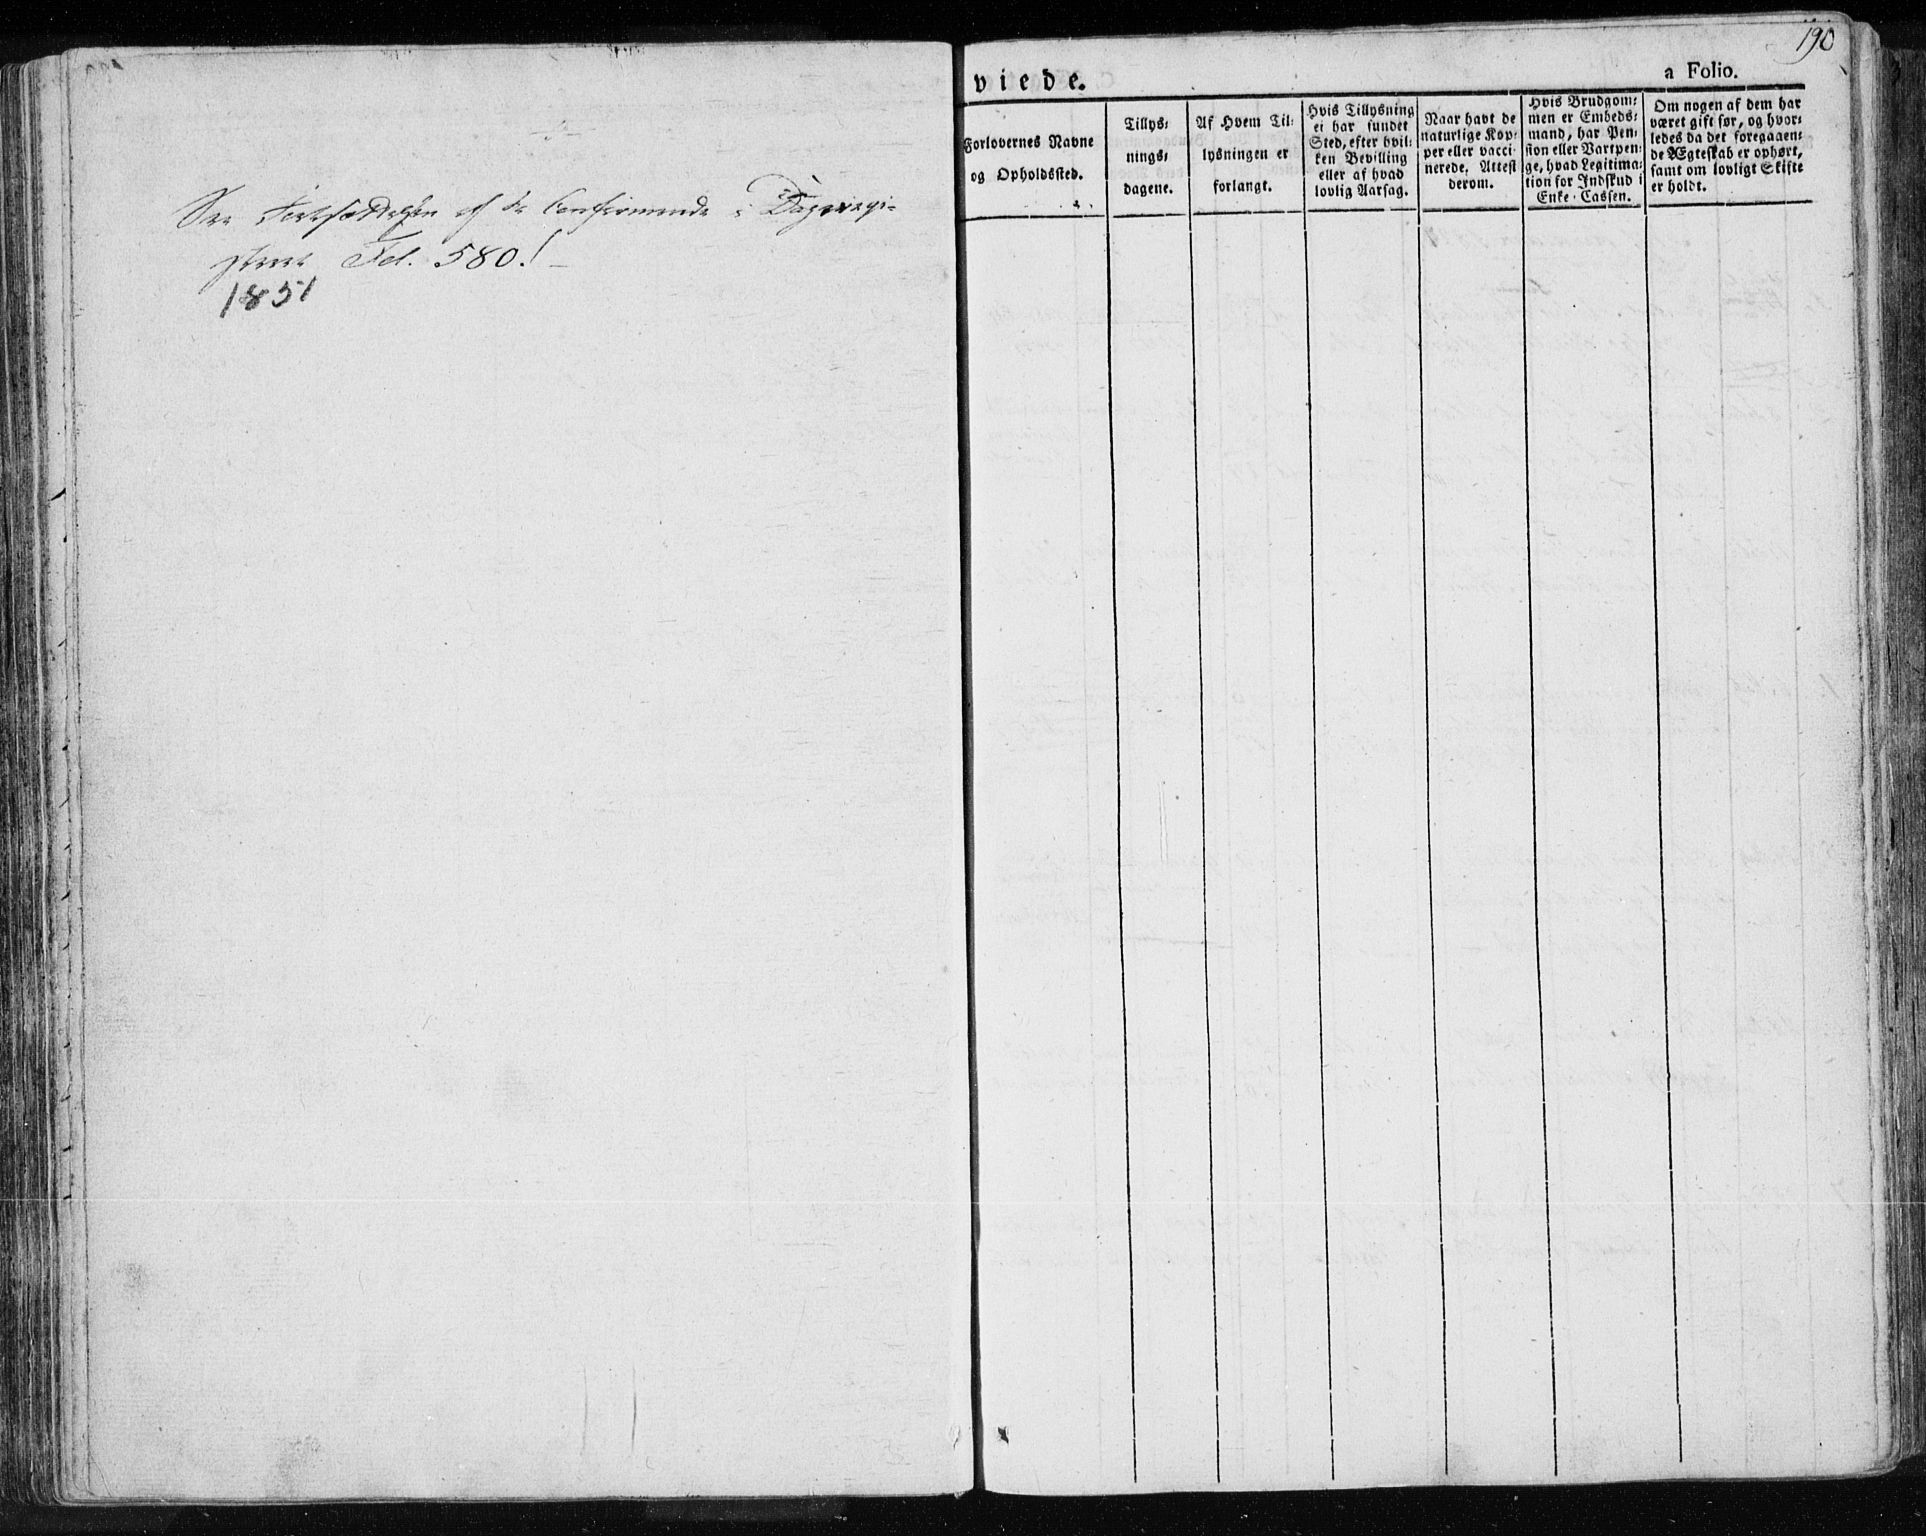 See Fortsættelsen af de Confirmerede i Dagregi-
steret Fol. 580!
1851
190
viede.
a Folio.
Forlovernes Navne
og Opholdssted.
Tillys-
nings-
dagene.
Af Hvem Til-
lysningen er
forlangt.
Hvis Tillysning
ei har fundet
Sted, efter hvil-
ken Bevilling
eller af hvad
lovlig Aarsag.
Naar havt de
naturlige Kop-
per eller vacci-
nerede. Attest
derom.
Hvis Brudgom-
men er Embeds-
mand, har Pen-
sion eller Vartpen-
ge, hvad Legitima-
tion for Indskud i
Enke-Cassen.
Om nogen af dem har
været gift før, og hvor-
ledes da det foregaaen-
de Ægteskab er ophørt,
samt om lovligt Skifte
er holdt.